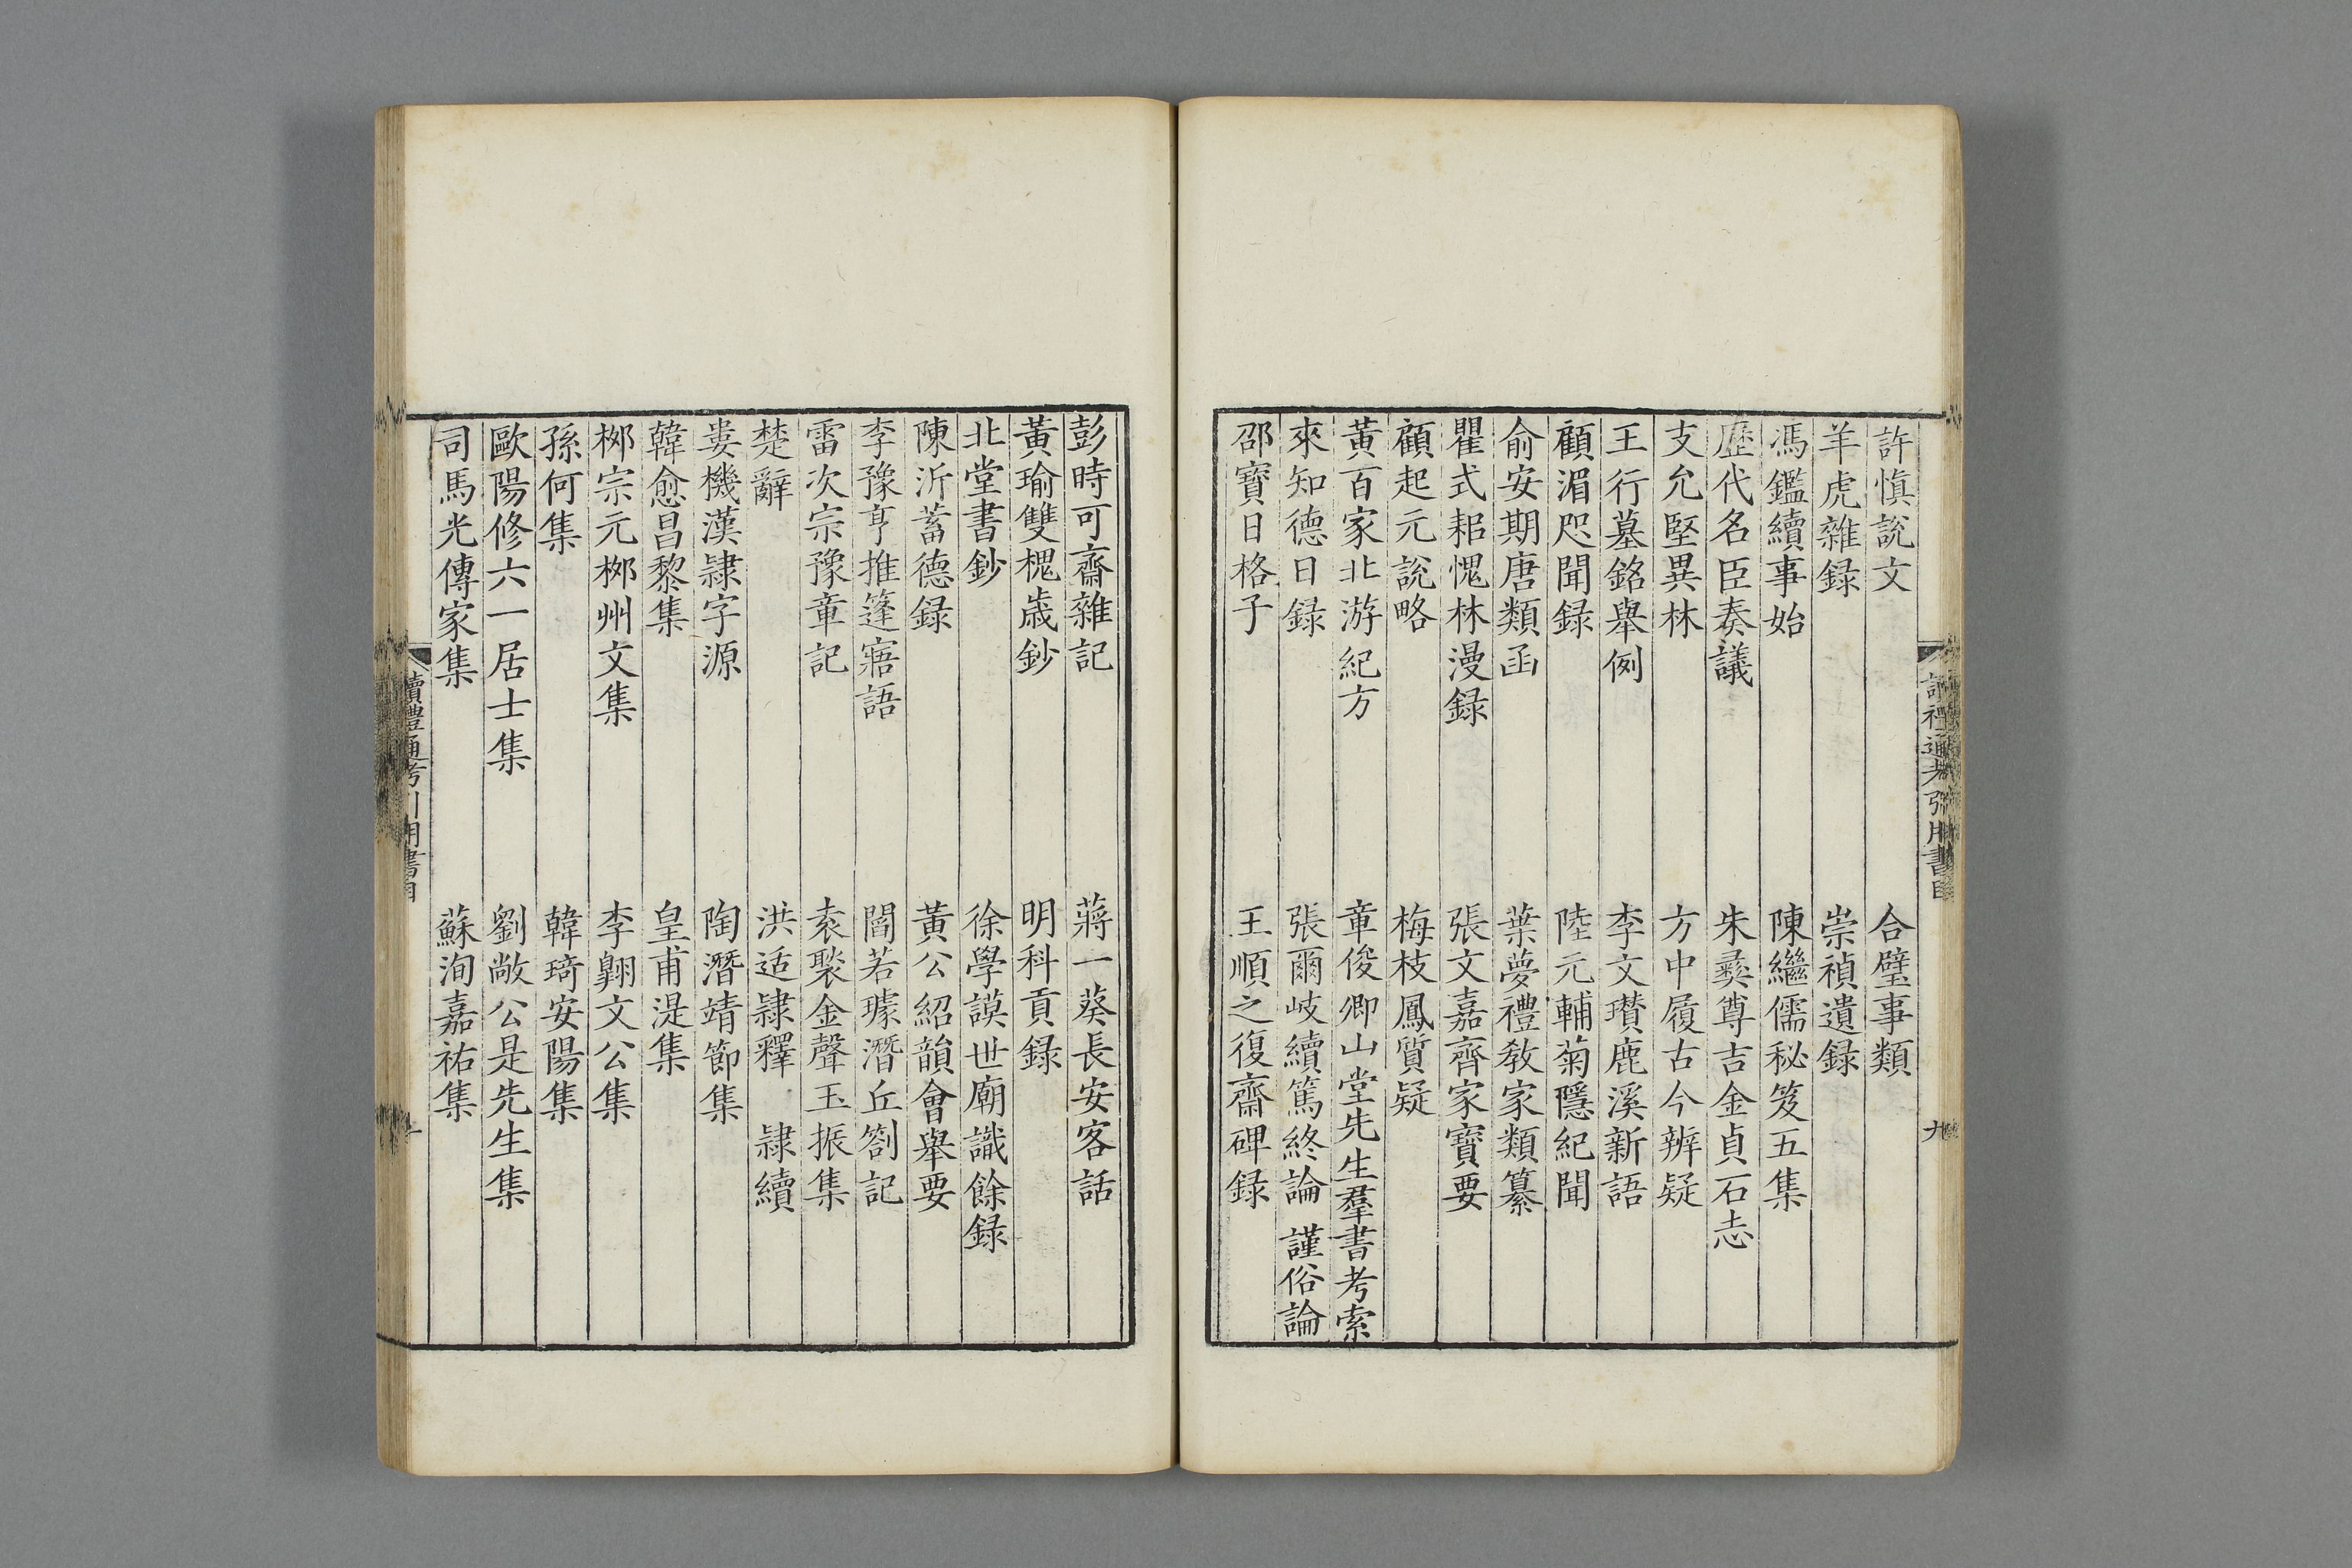 許愼說文　合璧事類
羊虎雜録　崇禎遺録
馮鑑續事始　陳繼儒秘笈五集
歷代名臣奏議　朱彝尊吉金貞石志
支允堅異林　方中履古今辨疑
王行墓銘舉例　李文瓚鹿溪新語
顧湄咫聞録　陸元輔菊隱紀聞
俞安期唐類函　葉夢禮教家類纂
瞿式耜愧林漫録　張文嘉齊家寶要
顧起元說略　梅枝鳳質疑
黃百家北游紀方　章俊卿山堂先生羣書考索
來知德日録　張爾岐續篤終論　謹俗論
邵寶日格子　王順之復齋碑録
讀禮通考引用書目　九
彭時可齋雜記　蔣一葵長安客話
黃瑜雙槐歲鈔　明科貢録
北堂書鈔　徐學謨世廟識餘録
陳沂蓄德録　黃公紹韻會舉要
李豫亨推篷寤語　閻若璩潛丘劄記
雷次宗豫章記　袁褧金聲玉振集
楚辭　洪适隷釋　隷續
婁機漢隷字源　陶潛靖節集
韓愈昌黎集　皇甫湜集
柳宗元柳州文集　李翺文公集
孫何集　韓琦安陽集
歐陽修六一居士集　劉敞公是先生集
司馬光傳家集　蘇洵嘉祐集
讀禮通考引用書目